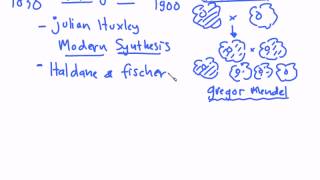 1850
1900
- Julian Huxley
Modern Synthesis
- Haldane & fischer
gregor mendel